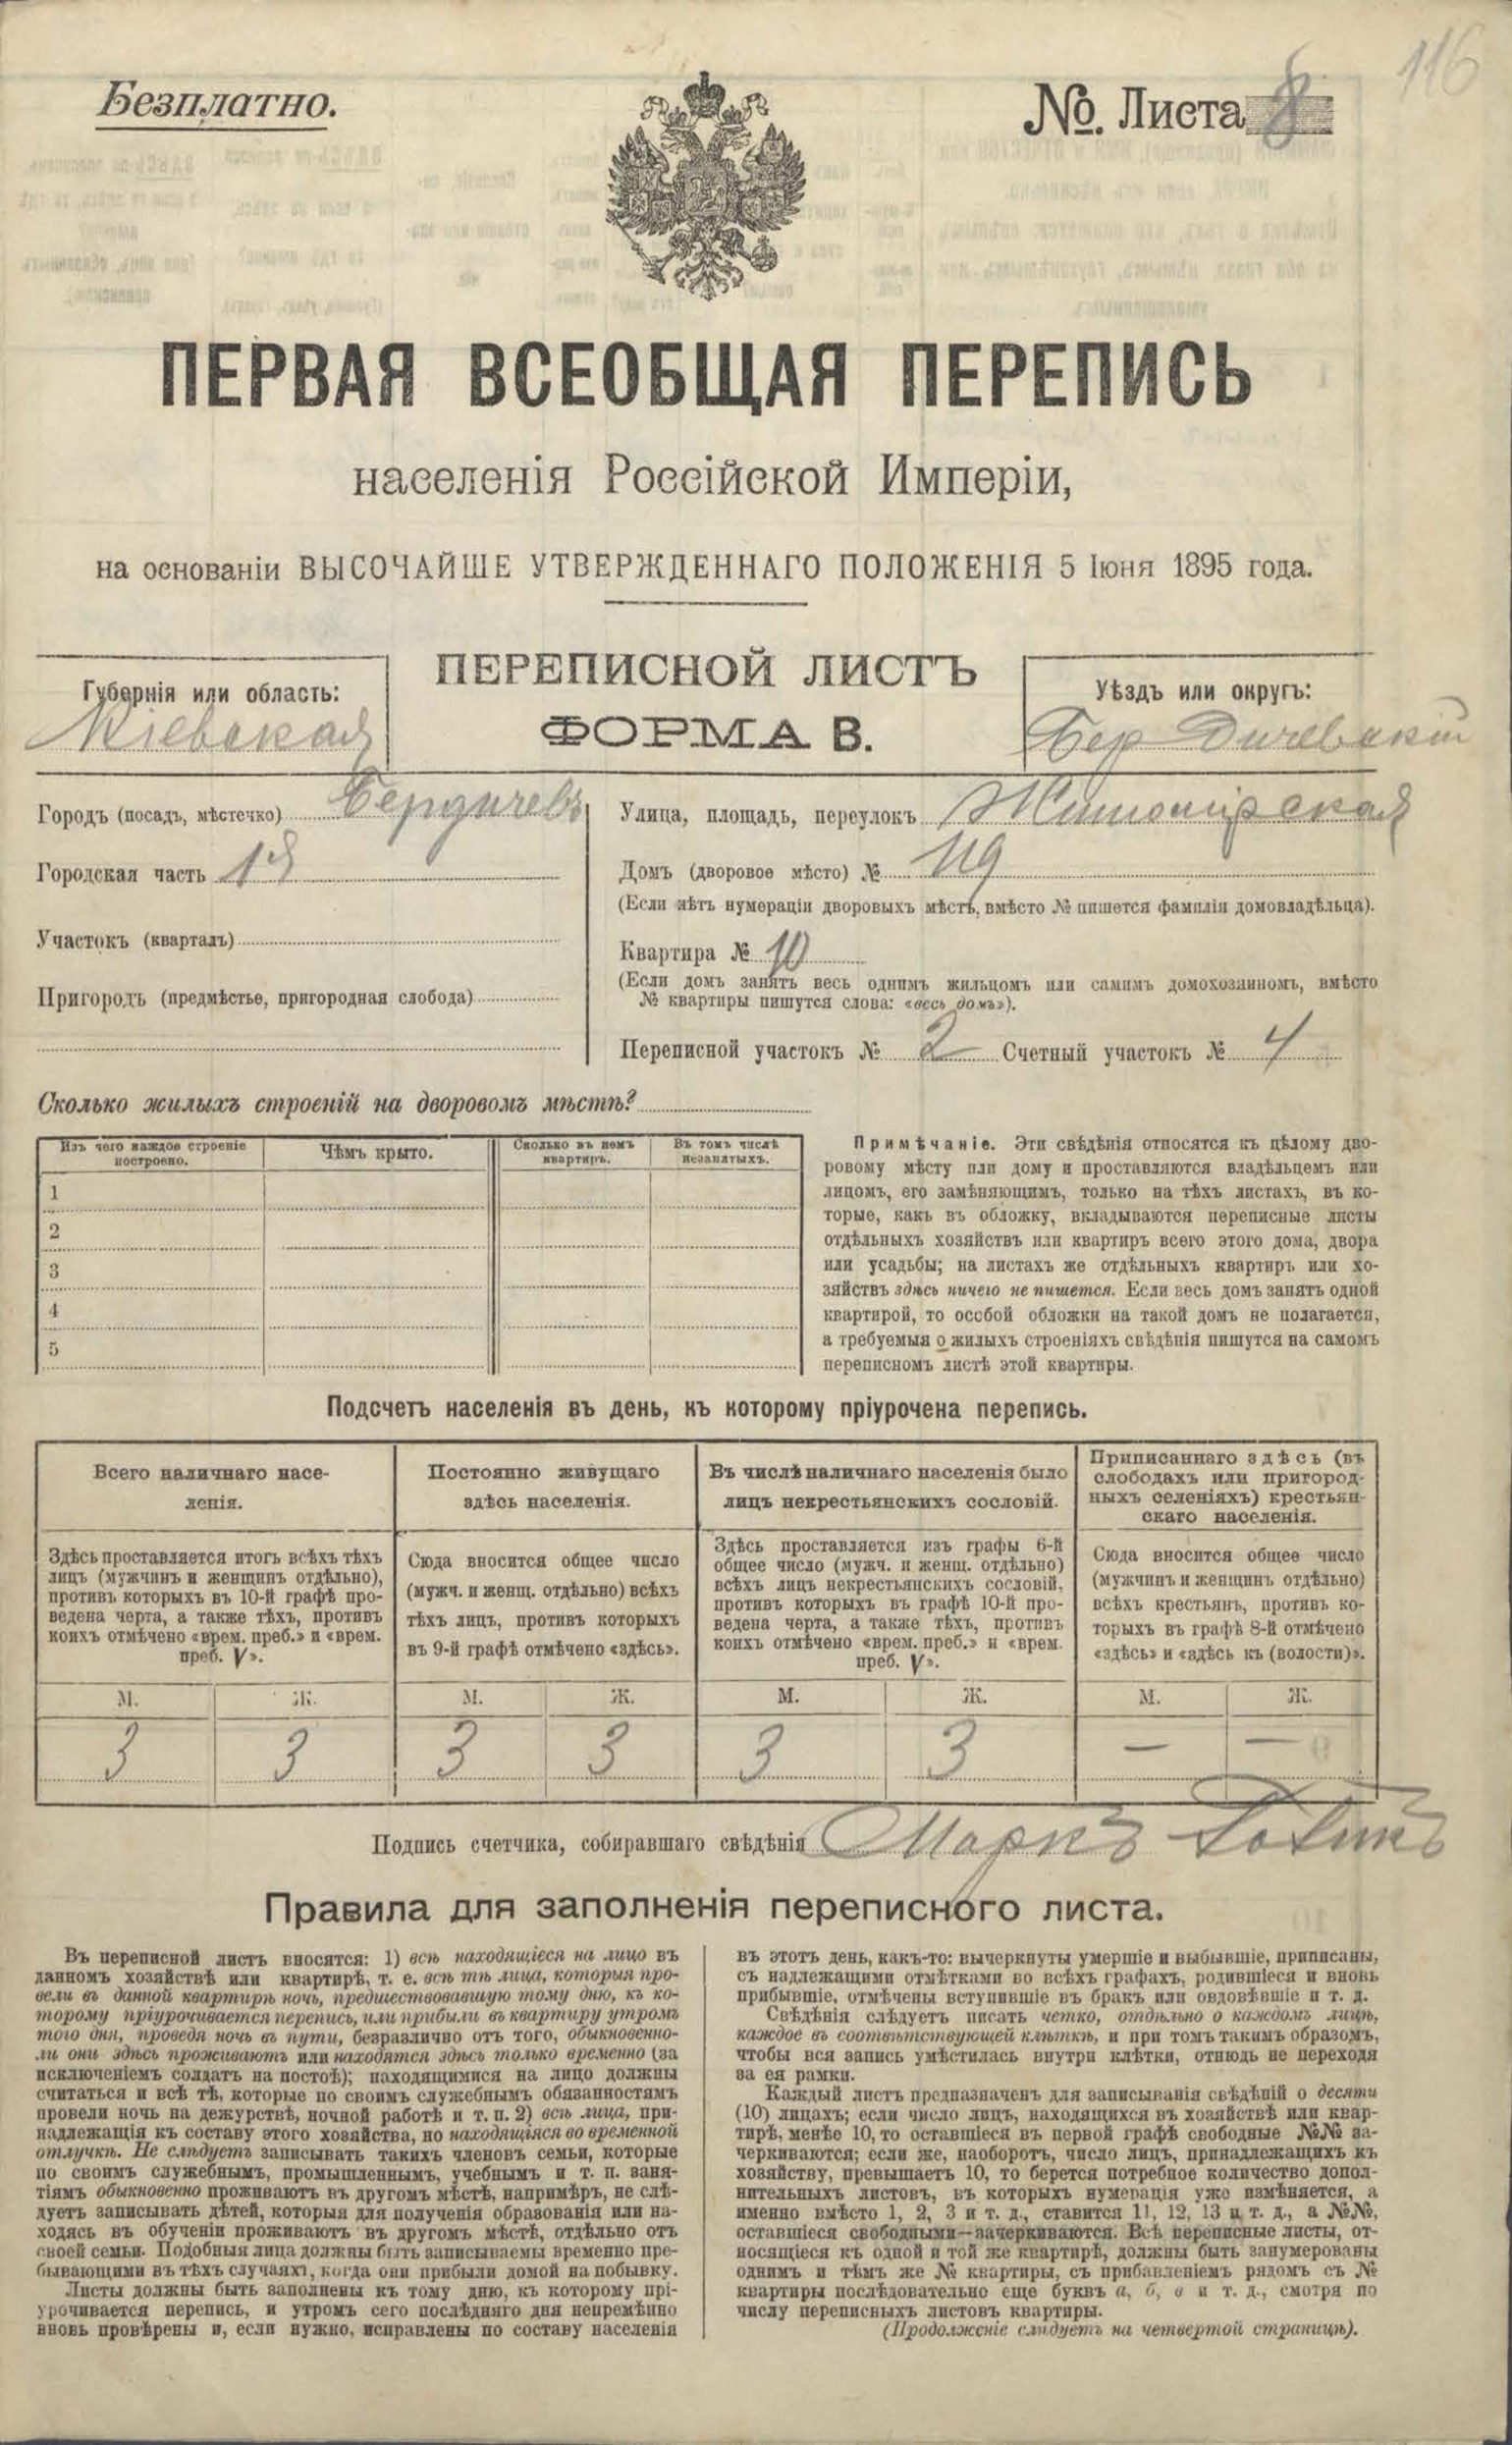 116
Безплатно.
№. Листа 8
ПЕРВАЯ ВСЕОБЩАЯ ПЕРЕПИСЬ
населенія Россійской Имперіи,
на основаніи ВЫСОЧАЙШЕ УТВЕРЖДЕННАГО ПОЛОЖЕНІЯ 5 Іюня 1895 года.
ПЕРЕПИСНОЙ ЛИСТЪ
ФОРМА В.
Губернія или область:
Кіевская
Уѣздъ или округъ:
Бердичевскій
Городъ (посадъ, мѣстечко) Бердичевъ
Городская часть 1я
Участокъ (кварталъ)
Пригородъ (предмѣстье, пригородная слобода)
Улица, площадь, переулокъ Житомірская
Домъ (дворовое мѣсто) № 119
(Если нѣтъ нумераціи дворовыхъ мѣстъ, вмѣсто № пишется фамилія домовладѣльца).
Квартира № 10
(Если домъ занятъ весь однимъ жильцомъ или самимъ домохозяиномъ, вмѣсто
№ квартиры пишутся слова: «весь домъ»).
Переписной участокъ № 2 Счетный участокъ № 4
Сколько жилыхъ строеній на дворовомъ мѣстѣ?
Изъ чего каждое строеніе
построено.
Чѣмъ крыто.
Сколько въ немъ
квартиръ.
Въ томъ числѣ
незанятыхъ.
1
2
3
4
5
Примѣчаніе. Эти свѣдѣнія относятся къ цѣлому дво-
ровому мѣсту или дому и проставляются владѣльцемъ или
лицомъ, его замѣняющимъ, только на тѣхъ листахъ, въ ко-
торые, какъ въ обложку, вкладываются переписные листы
отдѣльныхъ хозяйствъ или квартиръ всего этого дома, двора
или усадьбы; на листахъ же отдѣльныхъ квартиръ или хо-
зяйствъ здѣсь ничего не пишется. Если весь домъ занятъ одной
квартирой, то особой обложки на такой домъ не полагается,
а требуемыя о жилыхъ строеніяхъ свѣдѣнія пишутся на самомъ
переписномъ листѣ этой квартиры.
Подсчетъ населенія въ день, къ которому пріурочена перепись.
Всего наличнаго насе-
ленія.
Постоянно живущаго
здѣсь населенія.
Въ числѣ наличнаго населенія было
лицъ некрестьянскихъ сословій.
Приписаннаго здѣсь (въ
слободахъ или пригород-
ныхъ селеніяхъ) крестьян-
скаго населенія.
Здѣсь проставляется итогъ всѣхъ тѣхъ
лицъ (мужчинъ и женщинъ отдѣльно),
противъ которыхъ въ 10-й графѣ про-
ведена черта, а также тѣхъ, противъ
коихъ отмѣчено «врем. преб.» и «врем.
преб. V».
Сюда вносится общее число
(мужч. и женщ. отдѣльно) всѣхъ
тѣхъ лицъ, противъ которыхъ
въ 9-й графѣ отмѣчено «здѣсь».
Здѣсь проставляется изъ графы 6-й
общее число (мужч. и женщ. отдѣльно)
всѣхъ лицъ некрестьянскихъ сословій,
противъ которыхъ въ графѣ 10-й про-
ведена черта, а также тѣхъ, противъ
коихъ отмѣчено «врем. преб.» и «врем.
преб. V».
Сюда вносится общее число
(мужчинъ и женщинъ отдѣльно)
всѣхъ крестьянъ, противъ ко-
торыхъ въ графѣ 8-й отмѣчено
«здѣсь» и «здѣсь къ (волости)».
М. Ж. М. Ж. М. Ж. М. Ж.
3 3 3 3 3 3 — —
Подпись счетчика, собиравшаго свѣдѣнія Маркъ
Правила для заполненія переписного листа.
Въ переписной листъ вносятся: 1) всѣ находящіеся на лицо въ
данномъ хозяйствѣ или квартирѣ, т. е. всѣ тѣ лица, которыя про-
вели въ данной квартирѣ ночь, предшествовавшую тому дню, къ ко-
торому пріурочивается перепись, или прибыли въ квартиру утромъ
того дня, проведя ночь въ пути, безразлично отъ того, обыкновенно-
ли они здѣсь проживаютъ или находятся здѣсь только временно (за
исключеніемъ солдатъ на постоѣ); находящимися на лицо должны
считаться и всѣ тѣ, которые по своимъ служебнымъ обязанностямъ
провели ночь на дежурствѣ, ночной работѣ и т. п. 2) всѣ лица, при-
надлежащія къ составу этого хозяйства, но находящіяся во временной
отлучкѣ. Не слѣдуетъ записывать такихъ членовъ семьи, которые
по своимъ служебнымъ, промышленнымъ, учебнымъ и т. п. заня-
тіямъ обыкновенно проживаютъ въ другомъ мѣстѣ, напримѣръ, не слѣ-
дуетъ записывать дѣтей, которыя для полученія образованія или на-
ходясь въ обученіи проживаютъ въ другомъ мѣстѣ, отдѣльно отъ
своей семьи. Подобныя лица должны быть записываемы временно пре-
бывающими въ тѣхъ случаяхъ, когда они прибыли домой на побывку.
Листы должны быть заполнены къ тому дню, къ которому прі-
урочивается перепись, и утромъ сего послѣдняго дня непремѣнно
вновь провѣрены и, если нужно, исправлены по составу населенія
въ этотъ день, какъ-то: вычеркнуты умершіе и выбывшіе, приписаны,
съ надлежащими отмѣтками во всѣхъ графахъ, родившіеся и вновь
прибывшіе, отмѣчены вступившіе въ бракъ или овдовѣвшіе и т. д.
Свѣдѣнія слѣдуетъ писать четко, отдѣльно о каждомъ лицѣ,
каждое въ соотвѣтствующей клѣткѣ, и при томъ такимъ образомъ,
чтобы вся запись умѣстилась внутри клѣтки, отнюдь не переходя
за ея рамки.
Каждый листъ предназначенъ для записыванія свѣдѣній о десяти
(10) лицахъ; если число лицъ, находящихся въ хозяйствѣ или квар-
тирѣ, менѣе 10, то оставшіеся въ первой графѣ свободные №№ за-
черкиваются; если же, наоборотъ, число лицъ, принадлежащихъ къ
хозяйству, превышаетъ 10, то берется потребное количество допол-
нительныхъ листовъ, въ которыхъ нумерація уже измѣняется, а
именно вмѣсто 1, 2, 3 и т. д., ставится 11, 12, 13 и т. д., а №№,
оставшіеся свободными—зачеркиваются. Всѣ переписные листы, от-
носящіеся къ одной и той же квартирѣ, должны быть занумерованы
однимъ и тѣмъ же № квартиры, съ прибавленіемъ рядомъ съ №
квартиры послѣдовательно еще буквъ а, б, в и т. д., смотря по
числу переписныхъ листовъ квартиры.
(Продолженіе слѣдуетъ на четвертой страницѣ).